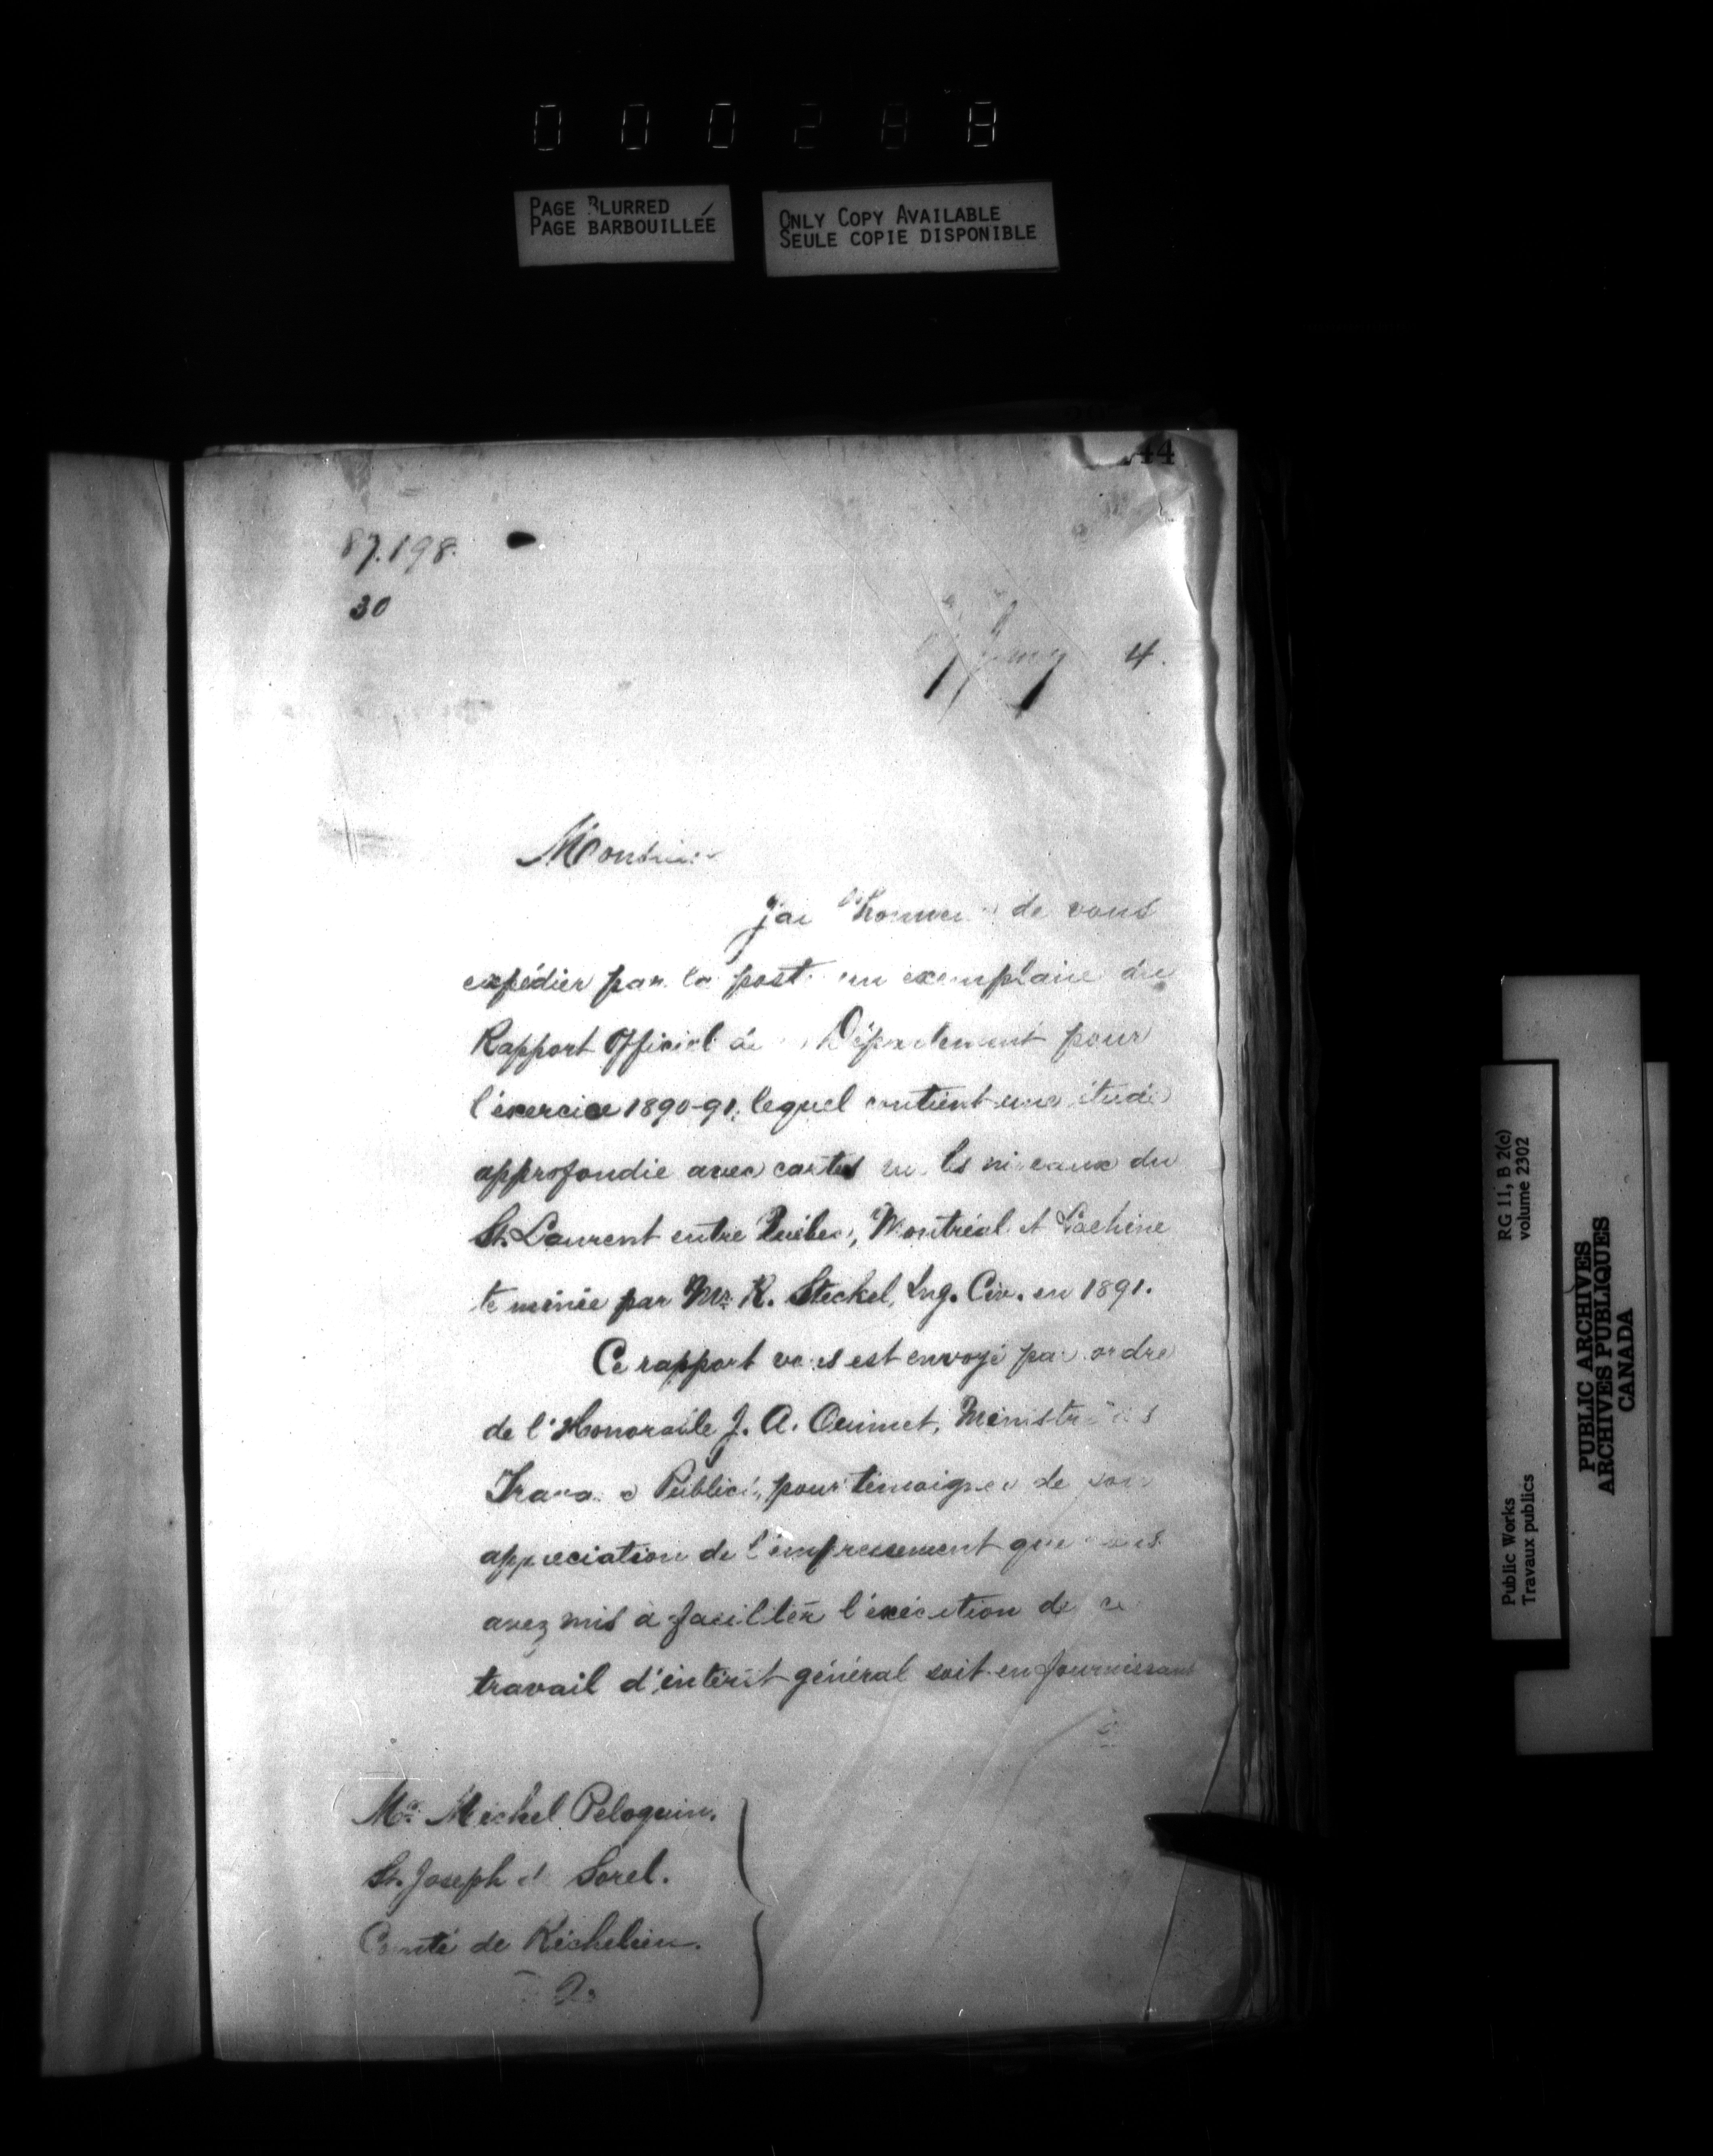 000288
PAGE BLURRED
PAGE BARBOUILLÉE
ONLY COPY AVAILABLE
SEULE COPIE DISPONIBLE
44
87.198.
30
4.
Monsieur
J'ai l'honneur de vous
expédier par la poste un exemplaire du
Rapport Officiel du Département pour
l'exercice 1890-91, lequel contient une étude
approfondie avec cartes sur les niveaux du
St. Laurent entre Québec, Montréal et Lachine
terminée par Mr. R. Steckel, Ing. Civ. en 1891.
Ce rapport vous est envoyé par ordre
de l'Honorable J. A. Ouimet, Ministre des
Travaux Publics, pour témoigner de son
appreciation de l'empressement que vous
avez mis à faciliter l'exécution de ce
travail d'intérêt général soit en fournissant
Mr. Michel Peloquin.
St. Joseph de Sorel.
Comté de Richelieu.
Q.
RG 11, B 2(c)
volume 2302
Public Works
Travaux publics
PUBLIC ARCHIVES
ARCHIVES PUBLIQUES
CANADA